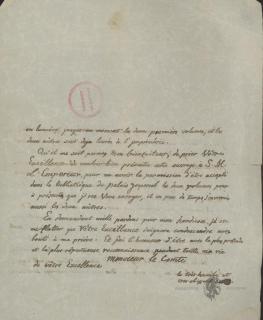 en lumière, jusqu'au moment les deux premiers volumes, et les
deux autres sont déja livrés à l'imprimerie.
Qu'il me soit permis Mon bienfaiteur, de prier Vôtre
Excellence de vouloir bien présenter cette ouvrage à S. M.
l'Empereur, pour me avoir la permission d'être accepté
dans la bibliothèque du palais les deux volumes pour
à présent, que j'ose Vous envoyer, et en peu de temps j'enverrai
aussi les deux autres.
En demandant mille pardons pour mon hardiesse, je me
flatte que Vôtre Excellence daignera condescendre avec
bonté à ma prière: Et j'ai l'honneur d'être avec la plus profonde
et la plus réspectueuse reconnaissance pendant toute ma vie
Monsieur le Comte
de Vôtre Excellence
le très humble et
très